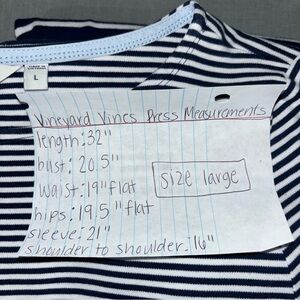 L
Vineyard Vines Dress Measurements
length: 32"
bust: 20.5"
waist: 19" flat
size large
hips: 19.5" flat
sleeve: 21"
shoulder to shoulder: 16"